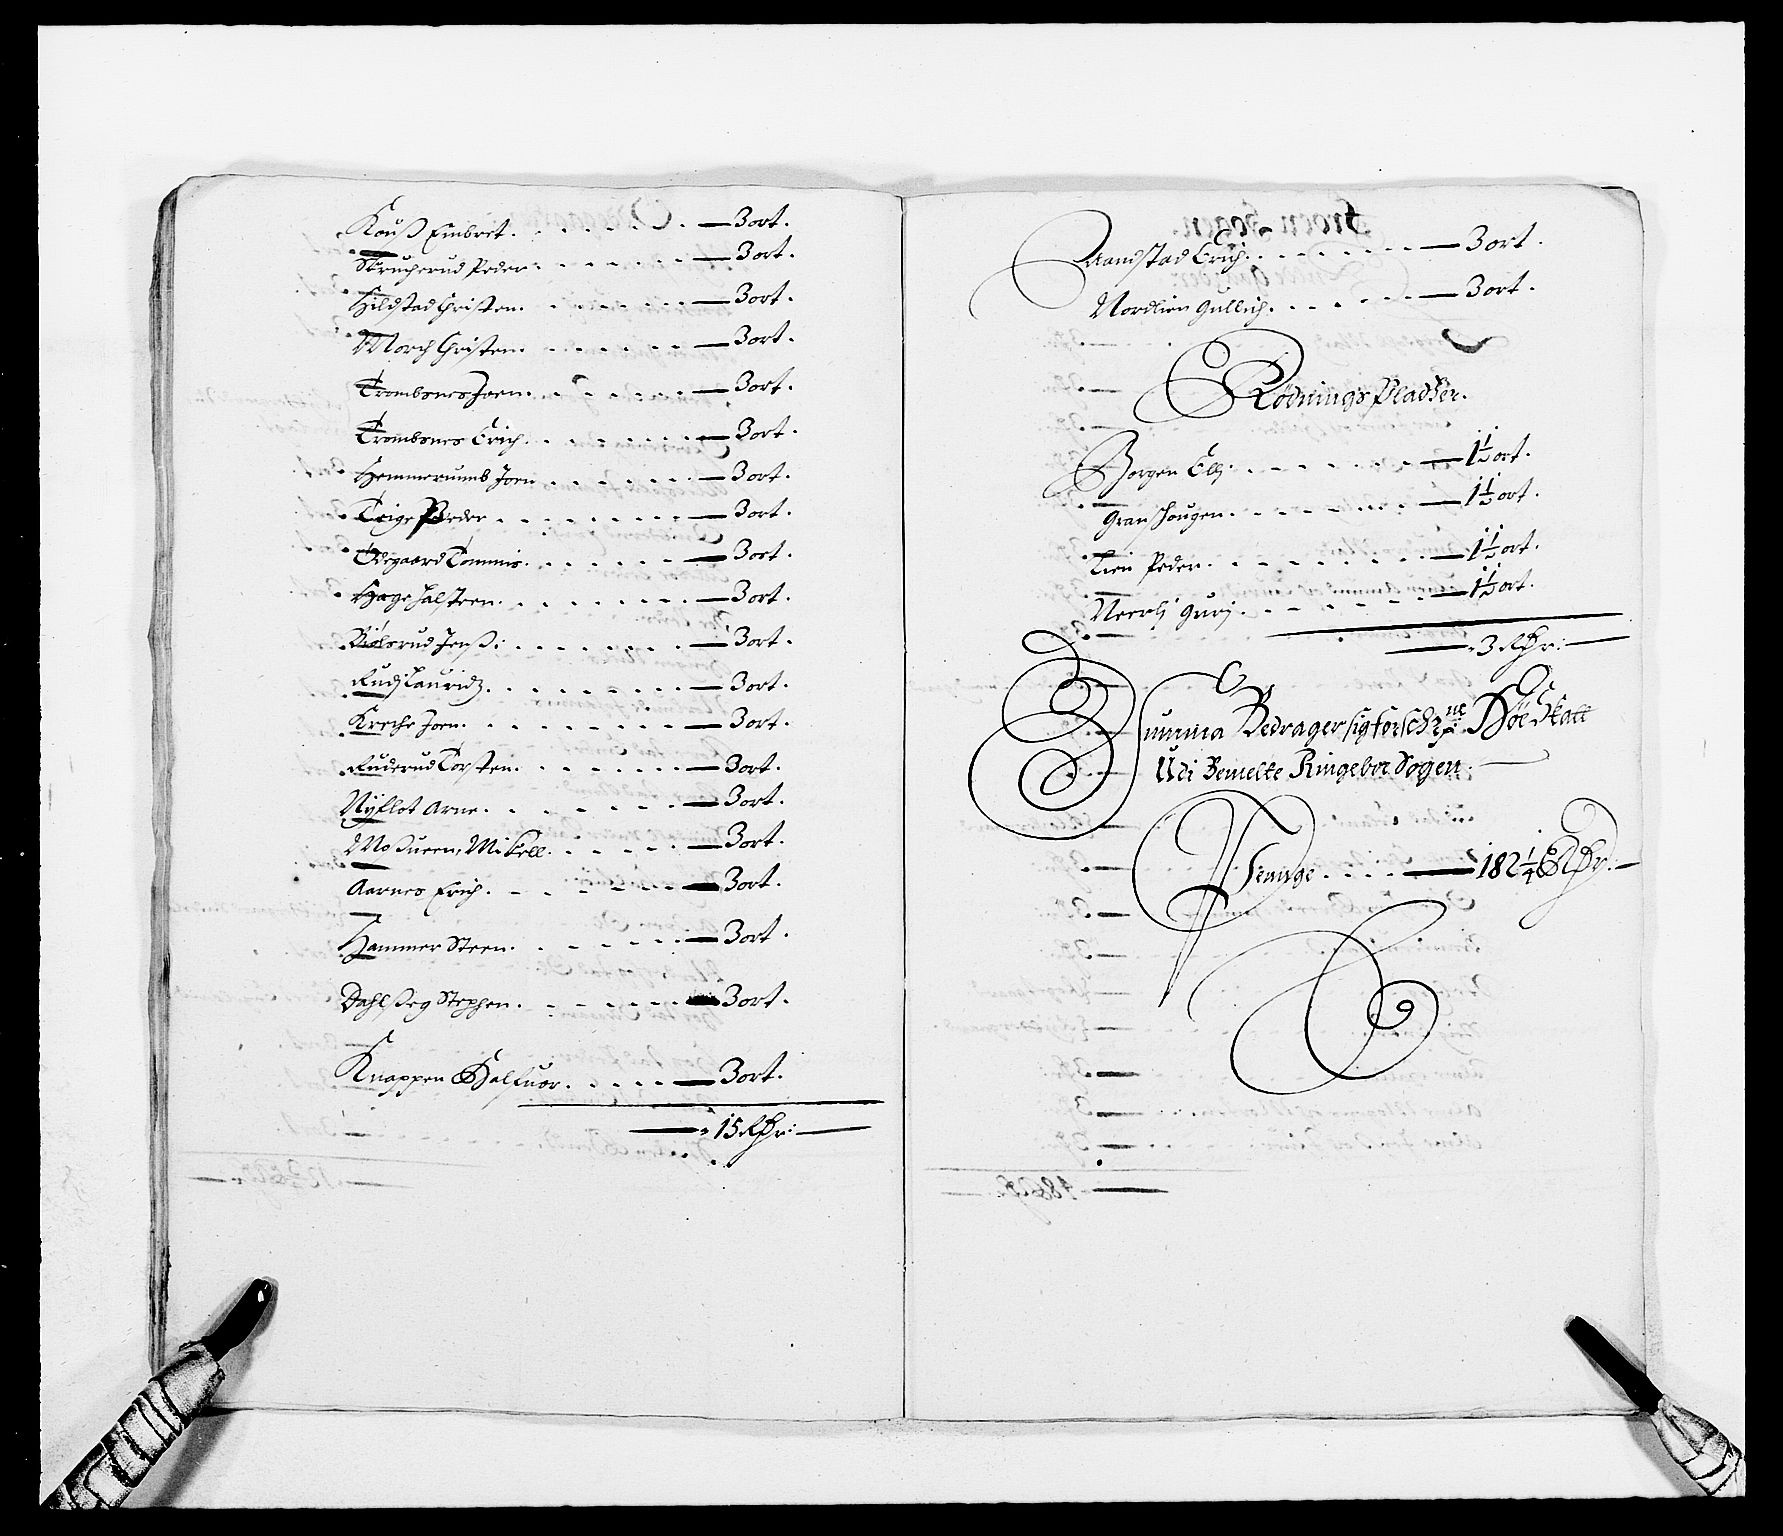 Kouß Embret. — 3 ort.
Strucherud Peder. — 3 ort.
Hildstad Christen. — 3 ort.
Morch Christen. — 3 ort.
Trombsnes Joen. — 3 ort.
Trombsnes Erich. — 3 ort.
Hemmerumb Joen — 3 ort.
Trige Peder — 3 ort.
Ödegaard Tommis. — 3 ort.
Hage Halsteen. — 3 ort.
Biölsrud Jenß: — 3 ort.
Rudj Lauridz. — 3 ort.
Kreche Joen. — 3 ort.
Ruderud Torsten. — 3 ort.
Nÿflot Arne. — 3 ort.
Moßueen, Mikell. — 3 ort.
Aarnes Erich. — 3 ort.
Hammer Steen. — 3 ort.
Dahlßeg Stephen. — 3 ort.
Knappen Halfuor. — 3 ort.
— 15 Rdr: —
Aandstad Erich. — 3 ort.
Nordlien Gullich. — 3 ort.
Rödnings Pladzer.
Borgen Ellj — 1½ ort.
Granshougen — 1½ ort.
Lien Peder. — 1½ ort.
Neerlj Gurj. — 1½ ort
— 3 Rdr: —
Summa Bedrager sig forschrne
Udi Bemelte Ringeboe Sogen. —
Penge — 182¼ Rdr: —